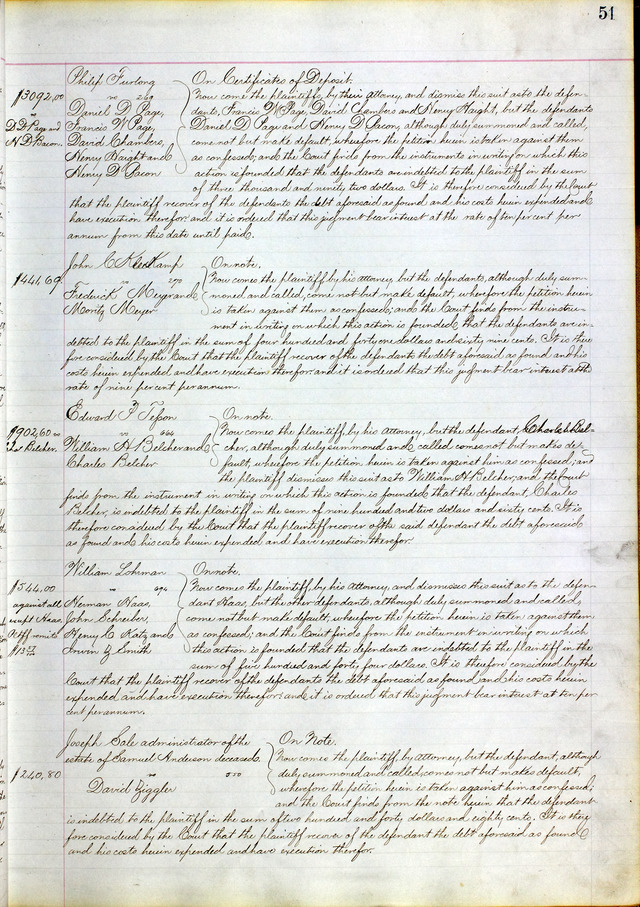 51
Philip Furlong On Certificates of Deposit.
$3092,00 Now come the plaintiffs, by their attorney, and dismiss this suit as to the defen-
vs 269
Daniel D Page, dants, Francis W Page, David Chambers and Henry Haight, but the defendants
vs D D Page and Francis W Page, Daniel D Page and Henry D Bacon, although duly summoned and called,
H D Bacon. David Chambers, come not but make default, wherefore the petition herein is taken against them
Henry Haight and as confessed; and the Court finds from the instruments in writing on which this
Henry D Bacon action is founded that the defendants are indebted to the plaintiff in the sum
of three thousand and ninety two dollars. It is therefore considered by the Court
that the plaintiff recover of the defendants the debt aforesaid as found and his costs herein expended and
have execution therefor: and it is ordered that this judgment bear interest at the rate of ten per cent per
annum from this date until paid.
John C Kleekamp On note.
vs 270 Now comes the plaintiff by his attorney, but the defendants, although duly sum-
$441,69 Frederick Meyer and moned and called, come not but make default, wherefore the petition herein
Moritz Meyer is taken against them as confessed; and the Court finds from the instru-
ment in writing on which this action is founded, that the defendants are in-
debted to the plaintiff in the sum of four hundred and forty one dollars and sixty nine cents. It is there-
fore considered by the Court that the plaintiff recover of the defendants the debt aforesaid as found and his
costs herein expended and have execution therefor: and it is ordered that this judgment bear interest at the
rate of nine per cent per annum.
Edward F Tesson On note.
$902,60 vs Now comes the plaintiff, by his Attorney, but the defendant, Charles Bel-
Chs Belcher. William H Belcher and cher, although duly summoned and called comes not but makes de-
Charles Belcher fault, wherefore the petition herein is taken against him as confessed; and
the plaintiff dismisses this suit as to William H Belcher, and the Court
finds from the instrument in writing on which this action is founded that the defendant, Charles
Belcher, is indebted to the plaintiff in the sum of nine hundred and two dollars and sixty cents. It is
therefore considered by the Court that the plaintiff recover of the said defendant the debt aforesaid
as found and his costs herein expended and have execution therefor.
William Lohman On note.
$544,00 Now comes the plaintiff by his Attorney, and dismisses this suit as to the defen-
against all Herman Haas, dant Haas, but the other defendants, although duly summoned and called,
except Haas. John Schreiber, come not but make default, wherefore the petition herein is taken against them
Henry C Katz and as confessed; and the Court finds from the instrument in writing on which
Irwin Z Smith this action is founded that the defendants are indebted to the plaintiff in the
sum of five hundred and forty four dollars. It is therefore considered by the
Court that the plaintiff recover of the defendants the debt aforesaid as found, and his costs herein
expended and have execution therefor: and it is ordered that this judgment bear interest at ten per
cent per annum.
Joseph Sale administrator of the On Note.
estate of Samuel Anderson deceased. Now comes the plaintiff by attorney, but the defendant, although
$240,80 vs duly summoned and called, comes not but makes default,
David Ziggler wherefore the petition herein is taken against him as confessed;
and the Court finds from the note herein that the defendant
is indebted to the plaintiff in the sum of two hundred and forty dollars and eighty cents. It is there-
fore considered by the Court that the plaintiff recover of the defendant the debt aforesaid as found
and his costs herein expended and have execution therefor.